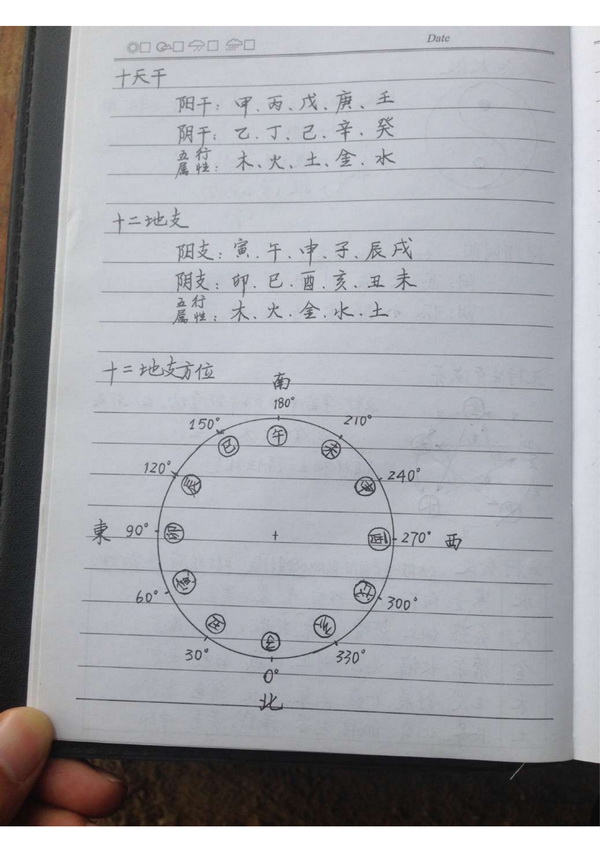 Date
十天干
阳干：甲、丙、戊、庚、壬
阴干：乙、丁、己、辛、癸
五行属性：木、火、土、金、水
十二地支
阳支：寅、午、申、子、辰戌
阴支：卯、巳、酉、亥、丑未
五行属性：木、火、金、水、土
十二地支方位
南
180°
150° 巳 午 未 210°
120° 辰 申 240°
東 90° 卯 酉 270° 西
60° 寅 戌 300°
30° 丑 子 亥 330°
0°
北